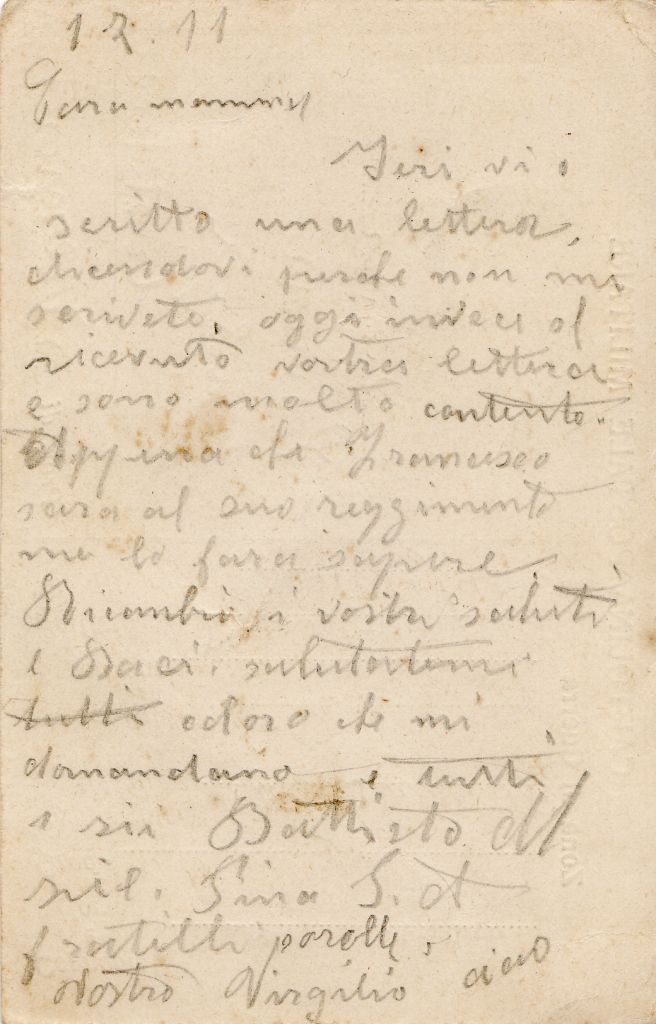 12.11
Cara mamma
Ieri vi o
scritto una lettera,
dicendovi perche non mi
scrivete, oggi invece o
ricevuto vostra lettera
e sono molto contento.
Appena che Francesco
sara al suo reggimento
me lo fara sapere
Ricambio i vostri saluti
e Baci. salutatemi
tutti coloro che mi
domandano e tutti
i zii Battisto
Gina
fratelli
vostro Virgilio ciao